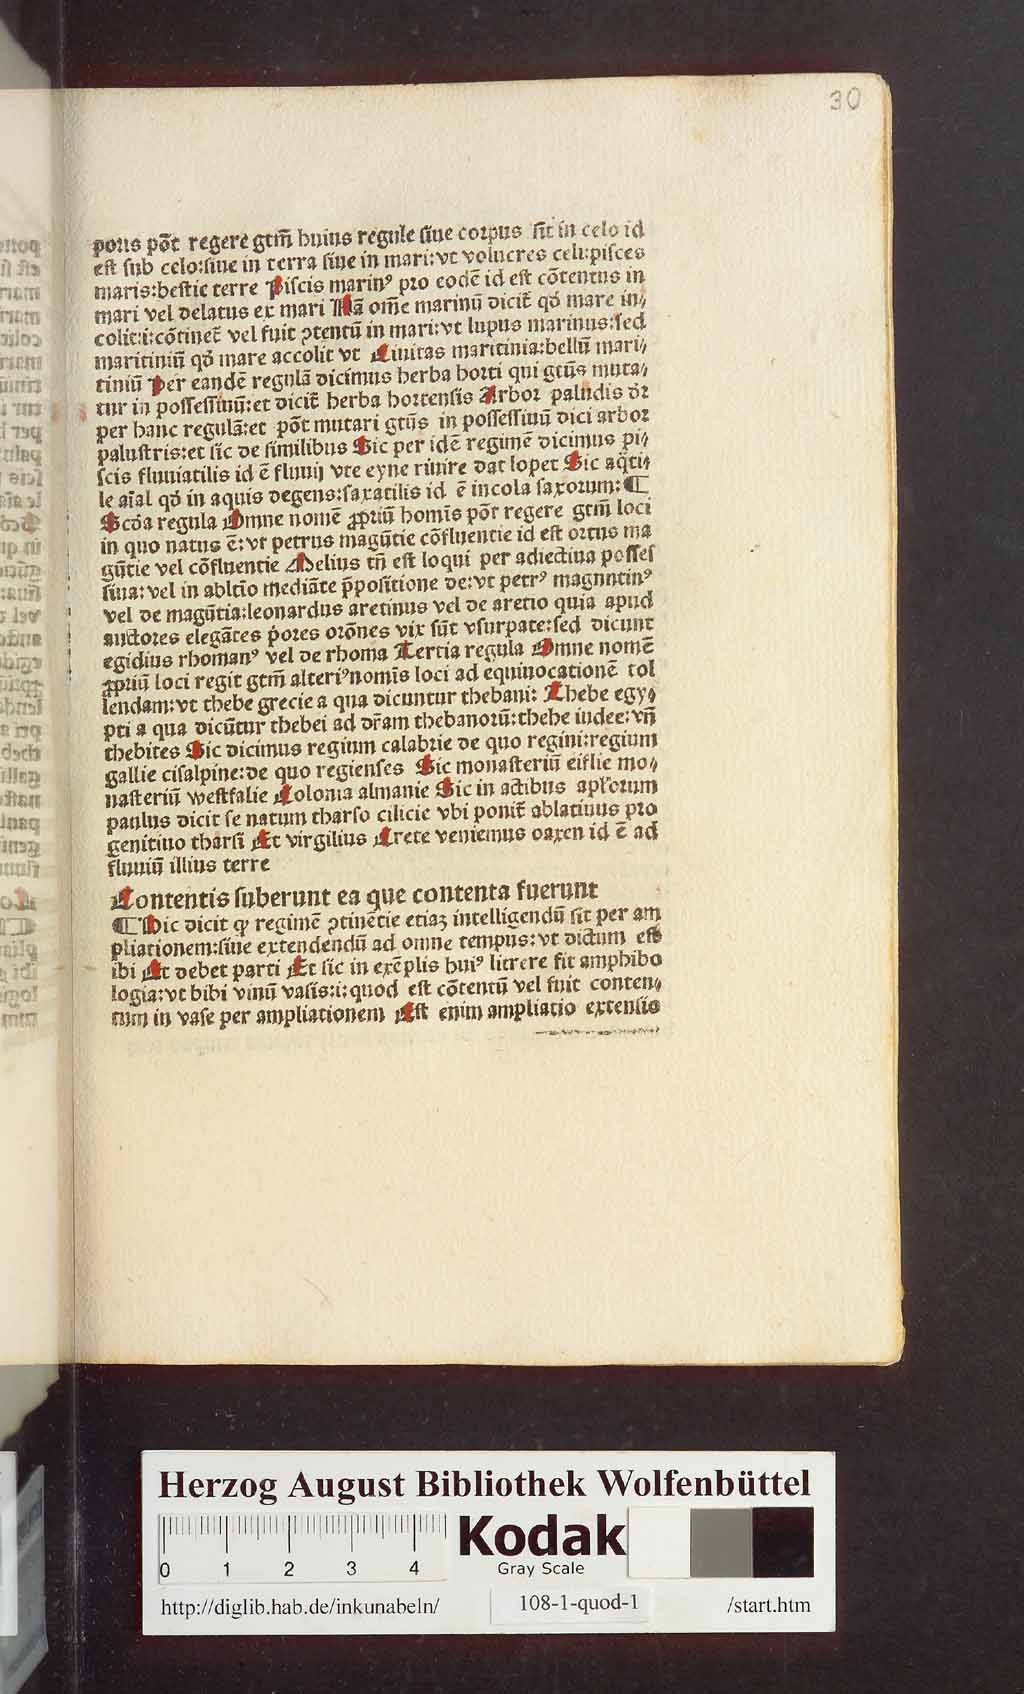 30
poris põt regere gtm̃ huius regule siue corpus sit in celo id
est sub celo:siue in terra siue in mari:vt volucres celi:pisces
maris:bestie terre Piscis marinꝰ pro eodē id est cõtentus in
mari vel delatus ex mari Nã om̃e marinũ dicit̃ qd̓ mare in⸗
colit:i:cõtinet̃ vel fuit ꝯtentũ in mari:vt lupus marinus:sed
maritiniũ qd̓ mare accolit vt Ciuitas maritinia:bellũ mari⸗
tiniũ Per eandē regulã dicimus herba horti qui gtũs muta⸗
tur in possessiuũ:et dicit̃ herba hortensis Arbor paludis dr̃
per hanc regulã:et põt mutari gtũs in possessiuũ dici arbor
palustris:et sic de similibus Sic per idē regimē dicimus pi⸗
scis fluuiatilis id ē fluuij vte eyne riuire dat lopet Sic aq̃ti⸗
le aĩal qd̓ in aquis degens:saxatilis id ē incola saxorum: ¶
Scd̓a regula Omne nomē ꝓpriũ homĩs põt regere gtm̃ loci
in quo natus ē:vt petrus magũtie cõfluentie id est ortus ma
gũtie vel cõfluentie Melius tñ est loqui per adiectiua posses
siua:vel in abltĩo mediãte p̃positione de:vt petrꝰ magũntinꝰ
vel de magũtia:leonardus aretinus vel de aretio quia apud
auctores elegãtes p̓ores orõnes vix sũt vsurpate:sed dicunt
egidius rhomanꝰ vel de rhoma Tertia regula Omne nomē
ꝓpriũ loci regit gtm̃ alteriꝰ nomĩs loci ad equiuocationē tol
lendam:vt thebe grecie a qua dicuntur thebani: Thebe egy⸗
pti a qua dicũtur thebei ad dr̃am thebanorũ:thebe iudee:vñ
thebites Sic dicimus regium calabrie de quo regini:regium
gallie cisalpine:de quo regienses Sic monasteriũ eiflie mo⸗
nasteriũ westfalie Colonia almanie Sic in actibus apl̓orum
paulus dicit se natum tharso cilicie vbi ponit̃ ablatiuus pro
genitiuo tharsi Et virgilius Crete veniemus oaxen id ē ad
fluuiũ illius terre
Contentis suberunt ea que contenta fuerunt
¶ Hic dicit ꝙ regimē ꝯtinẽtie etiaꝫ intelligendũ sit per am
pliationem:siue extendendũ ad omne tempus:vt dictum est
ibi Et debet parti Et sic in exẽplis huiꝰ littere fit amphibo
logia:vt bibi vinũ vasis:i:quod est cõtentũ vel fuit conten⸗
tum in vase per ampliationem Est enim ampliatio extensio
Herzog August Bibliothek Wolfenbüttel
0 1 2 3 4
Kodak
Gray Scale
http://diglib.hab.de/inkunabeln/ 108-1-quod-1 /start.htm